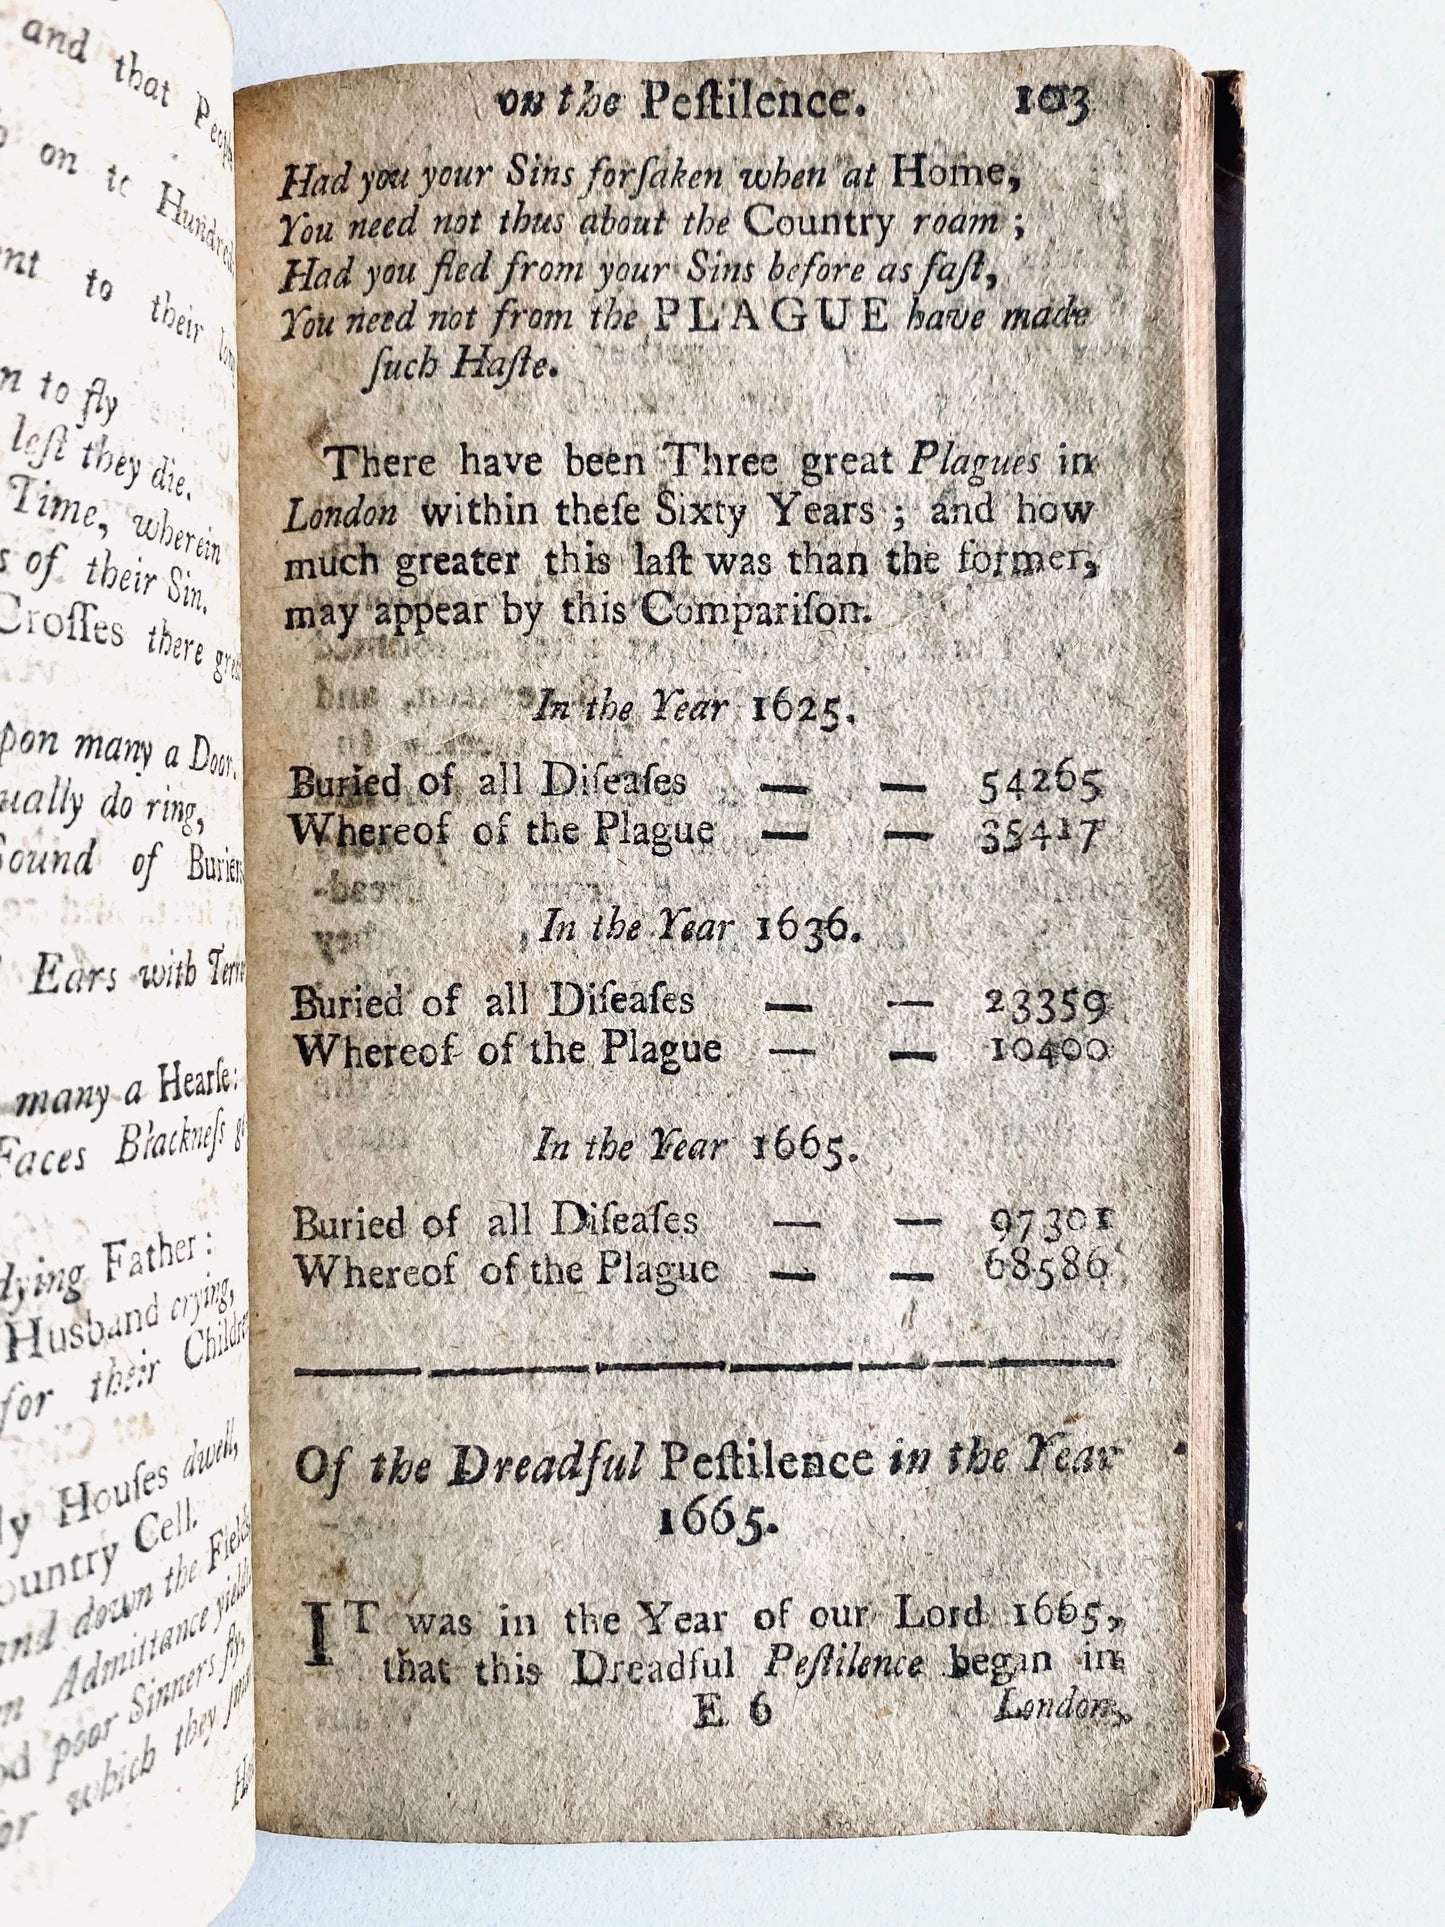 and that
on to Hundreds
to their long
to fly
lest they die.
Time, wherein
of their Sin.
Crosses there
upon many a Door,
do ring,
Sound of Buriers
Ears with
many a Hearſe:
Faces Blackneſs
dying Father:
Husband crying,
for their Children
Houſes dwell,
Country Cell.
and down the Fields
Admittance yield
poor Sinners fly,
for which they
on the Peſtilence. 103
Had you your Sins forſaken when at Home,
You need not thus about the Country roam;
Had you fled from your Sins before as faſt,
You need not from the PLAGUE have made
ſuch Haſte.
There have been Three great Plagues in
London within theſe Sixty Years; and how
much greater this laſt was than the former,
may appear by this Compariſon.
In the Year 1625.
Buried of all Diſeaſes — — 54265
Whereof of the Plague — — 35417
In the Year 1636.
Buried of all Diſeaſes — — 23359
Whereof of the Plague — — 10400
In the Year 1665.
Buried of all Diſeaſes — — 97301
Whereof of the Plague — — 68586
Of the Dreadful Peſtilence in the Year
1665.
IT was in the Year of our Lord 1665,
that this Dreadful Peſtilence began in
E 6 London,